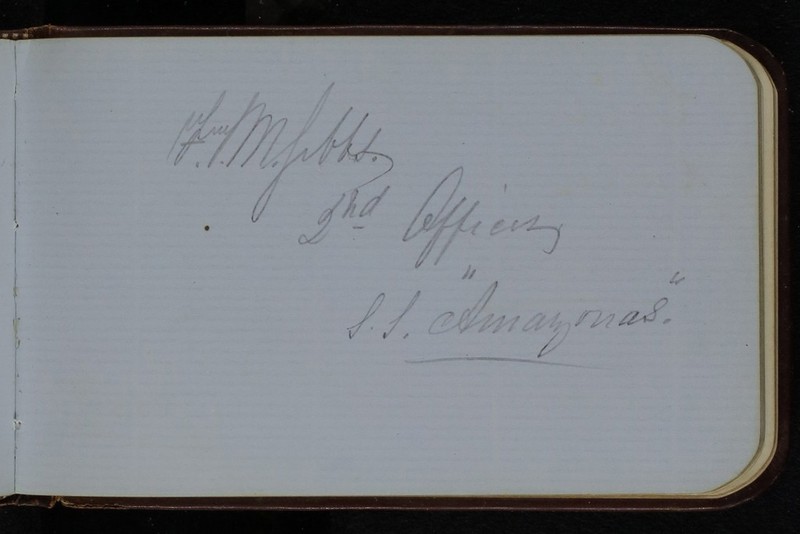 M. Gibbs.
2nd Officer,
S.S. "Amazonas."